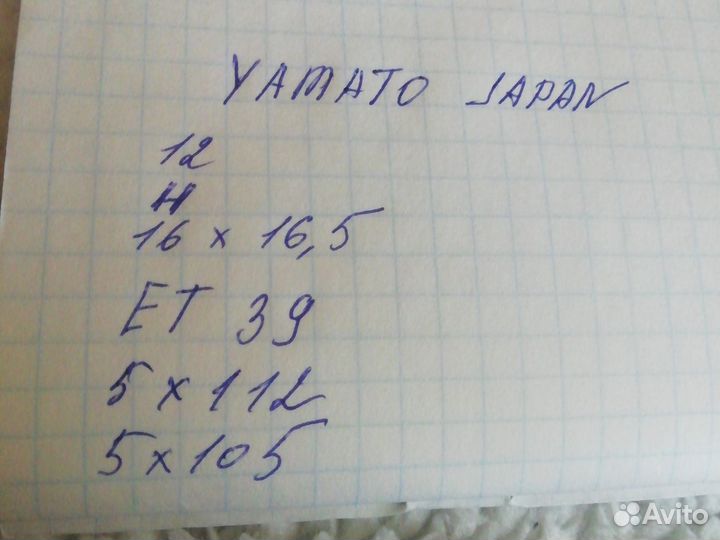 YAMATO JAPAN
12
H
16 x 16,5
ET 39
5 x 112
5 x 105
Avito